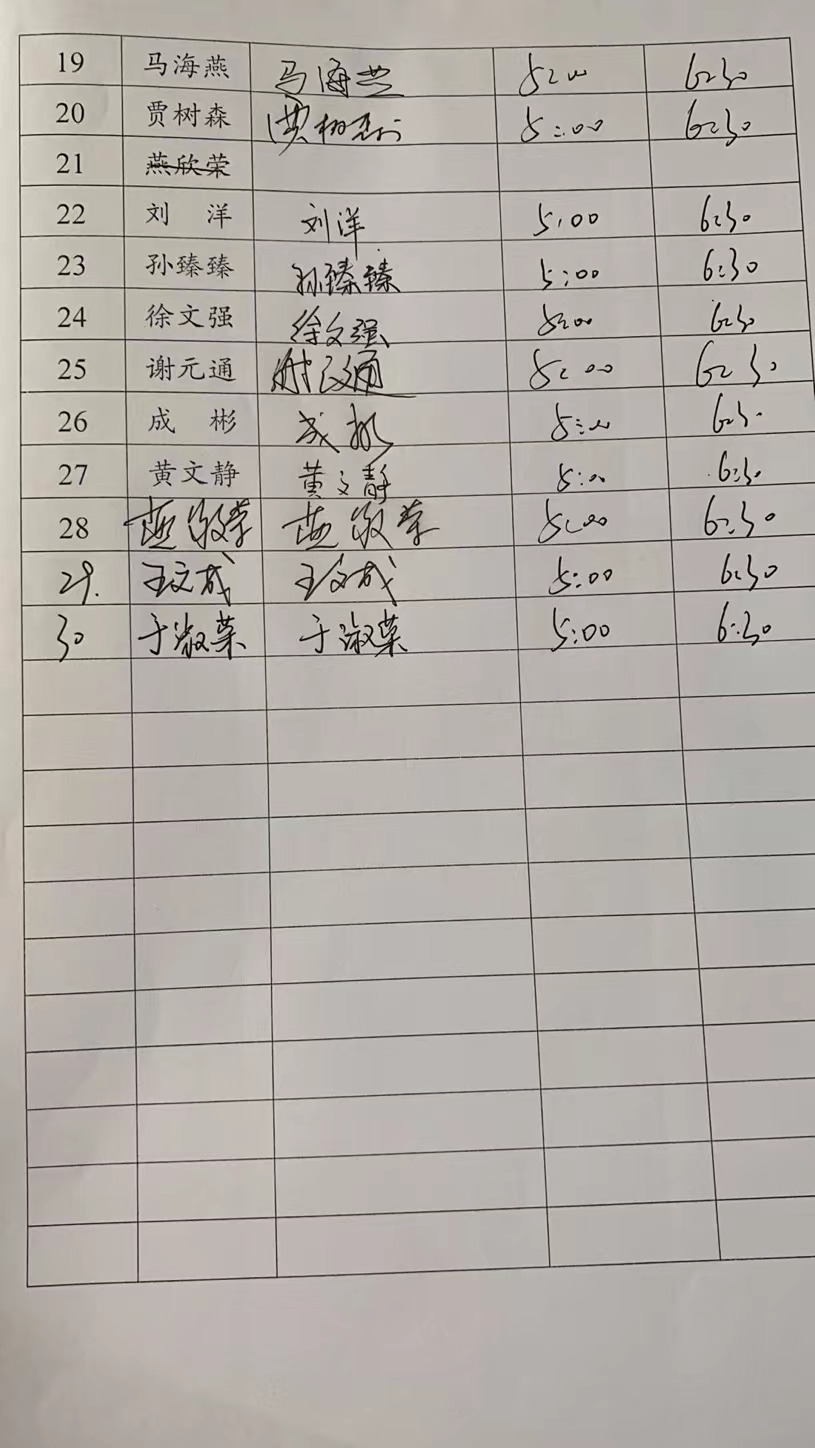 19 马海燕 马海燕 5:00 6:30
20 贾树森 贾树森 5:00 6:30
21 燕欣荣
22 刘 洋 刘洋 5:00 6:30
23 孙臻臻 孙臻臻 5:00 6:30
24 徐文强 徐文强 5:00 6:30
25 谢元通 谢元通 5:00 6:30
26 成 彬 成彬 5:00 6:30
27 黄文静 黄文静 5:00 6:30
28 5:00 6:30
29. 王文成 王文成 5:00 6:30
30 于淑荣 于淑荣 5:00 6:30